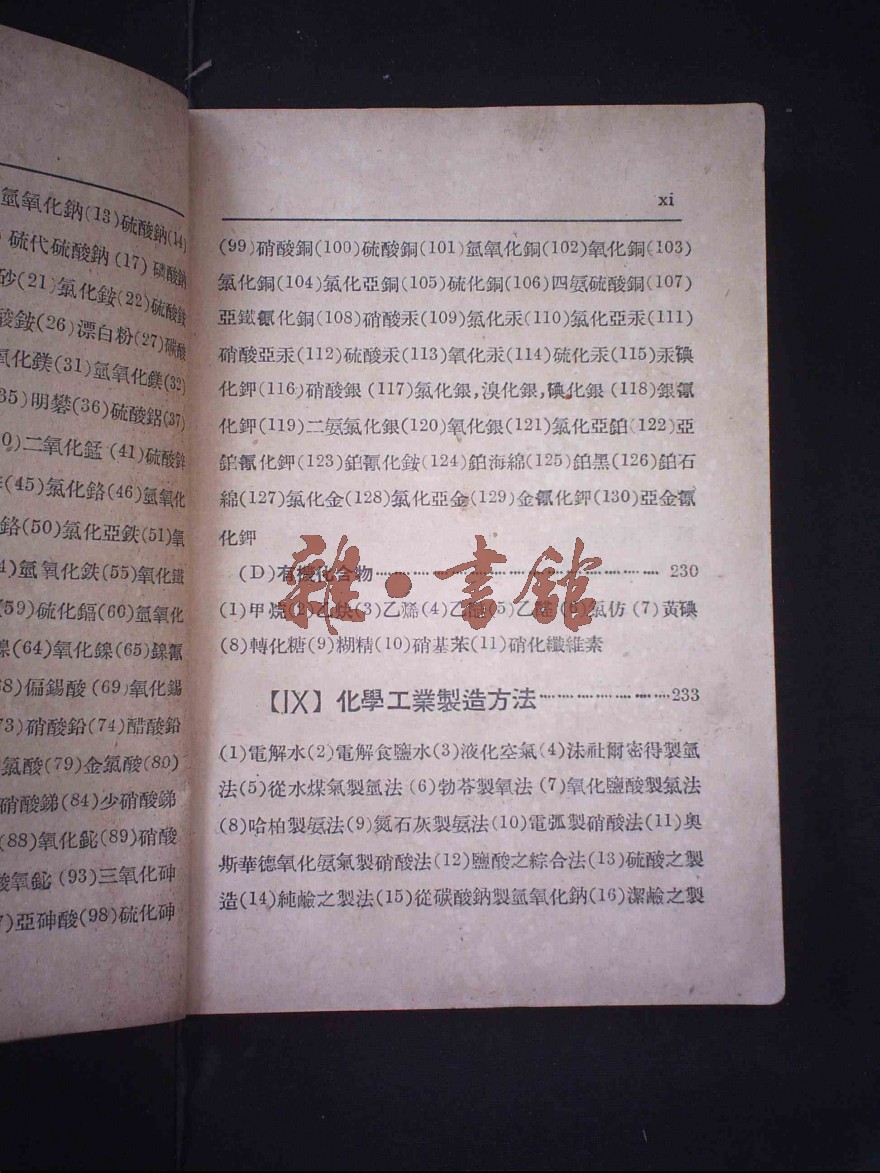 氫氧化鈉(13)硫酸鈉(14)
硫代硫酸鈉(17)磷酸鈉
砂(21)氯化銨(22)硫酸銨
酸銨(26)漂白粉(27)碳酸
氧化鎂(31)氫氧化鎂(32)
35)明礬(36)硫酸鋁(37)
0)二氧化錳(41)硫酸鋅
(45)氯化鉻(46)氫氧化
鉻(50)氯化亞鉄(51)氧
4)氫氧化鉄(55)氧化鐵
(59)硫化鎘(60)氫氧化
鎳(64)氧化鎳(65)鎳氰
68)偏錫酸(69)氧化錫
73)硝酸鉛(74)醋酸鉛
氯酸(79)金氯酸(80)
硝酸銻(84)少硝酸銻
(88)氧化鉍(89)硝酸
酸氧鉍(93)三氧化砷
7)亞砷酸(98)硫化砷
xi
(99)硝酸銅(100)硫酸銅(101)氫氧化銅(102)氧化銅(103)
氯化銅(104)氯化亞銅(105)硫化銅(106)四氨硫酸銅(107)
亞鐵氰化銅(108)硝酸汞(109)氯化汞(110)氯化亞汞(111)
硝酸亞汞(112)硫酸汞(113)氧化汞(114)硫化汞(115)汞碘
化鉀(116)硝酸銀(117)氯化銀,溴化銀,碘化銀(118)銀氰
化鉀(119)二氨氯化銀(120)氧化銀(121)氯化亞鉑(122)亞
鉑氰化鉀(123)鉑氰化銨(124)鉑海綿(125)鉑黑(126)鉑石
綿(127)氯化金(128)氯化亞金(129)金氰化鉀(130)亞金氰
化鉀
(D)有機化合物………………………………………… 230
(1)甲烷(2)乙炔(3)乙烯(4)乙(5)乙(6)氯仿(7)黃碘
(8)轉化糖(9)糊精(10)硝基苯(11)硝化纖維素
【IX】化學工業製造方法…………………233
(1)電解水(2)電解食鹽水(3)液化空氣(4)洡社爾密得製氫
法(5)從水煤氣製氫法(6)勃苓製氧法(7)氧化鹽酸製氯法
(8)哈柏製氨法(9)氮石灰製氨法(10)電弧製硝酸法(11)奧
斯華德氧化氨氣製硝酸法(12)鹽酸之綜合法(13)硫酸之製
造(14)純鹼之製法(15)從碳酸鈉製氫氧化鈉(16)潔鹼之製
雜·書館